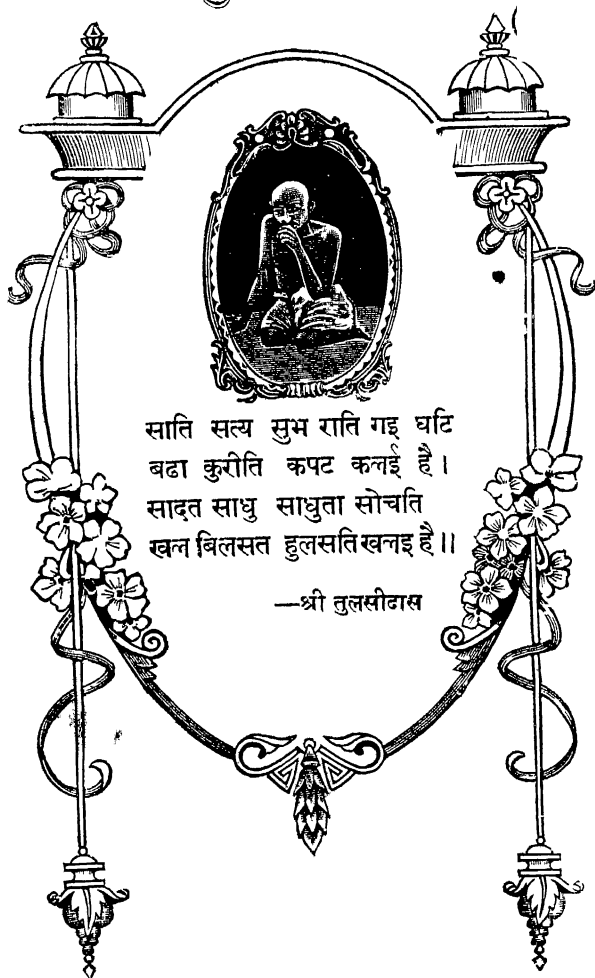 साति सत्य सुभ राति गइ घटि
बढी कुरीति कपट कलई है।
सादत साधु साधुता सोचति
खल बिलसत हुलसति खलइ है॥
—श्री तुलसीदास